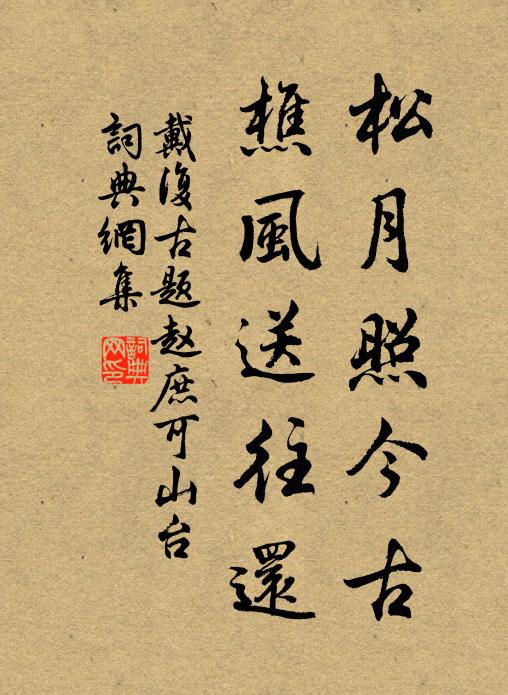 松月照今古
樵風送往還
戴復古题赵庶可山台
詞典網集
詞典网印